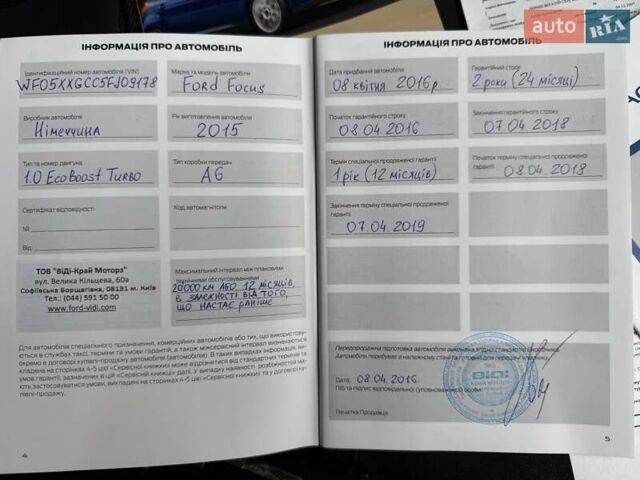 auto RIA
ІНФОРМАЦІЯ ПРО АВТОМОБІЛЬ
Ідентифікаційний номер автомобіля (VIN)
WF05XXGCC5FJ09178
Марка та модель автомобіля
Ford Focus
Виробник автомобіля
Німеччина
Рік виготовлення автомобіля
2015
Тип та номер двигуна
1.0 EcoBoost Turbo
Тип коробки передач
А6
Сертифікат відповідності
№
Від:
Код автомагнітоли
ТОВ "ВіДі-Край Моторз"
вул. Велика Кільцева, 60а
Софіївська Борщагівка, 08131 м. Київ
Тел.: (044) 591 50 00
www.ford-vidi.com
Максимальний інтервал між плановими
технічними обслуговуваннями
20000 км АБО 12 місяців,
в залежності від того,
що настає раніше
Для автомобілів спеціального призначення, комерційних автомобілів або тих, що використову-
ються в службах таксі, терміни та умови гарантії, а також міжсервісний інтервал визначаються
окремо в договорі купівлі-продажу автомобіля (автомобілів). В таких випадках інформація, ви-
кладена на сторінках 4-5 цієї «Сервісної книжки» може відрізнятися від стандартних термінів та
умов гарантії, зазначених в цій «Сервісній книжці» далі. У випадку наявності розбіжностей ма-
ють застосовуватися умови, викладені на сторінках 4-5 «Сервісної книжки» та у договорі ку-
півлі-продажу.
4
ІНФОРМАЦІЯ ПРО АВТОМОБІЛЬ
Дата придбання автомобіля
08 квітня 2016р
Гарантійний строк
2 роки (24 місяці)
Початок гарантійного строку
08.04.2016
Закінчення гарантійного строку
07.04.2018
Термін спеціальної продовженої гарантії
1 рік (12 місяців)
Початок терміну спеціальної продовженої
гарантії
08.04.2018
Закінчення терміну спеціальної продовженої
гарантії
07.04.2019
Передпродажна підготовка автомобіля виконана згідно стандартів виробника.
Автомобіль перебуває в належному стані та готовий для передачі клієнту.
Дата: 08.04.2016
ПІБ та підпис відповідальної (уповноваженої) особи
Печатка Продавця
ВіДі
КРАЙ МОТОРЗ
5